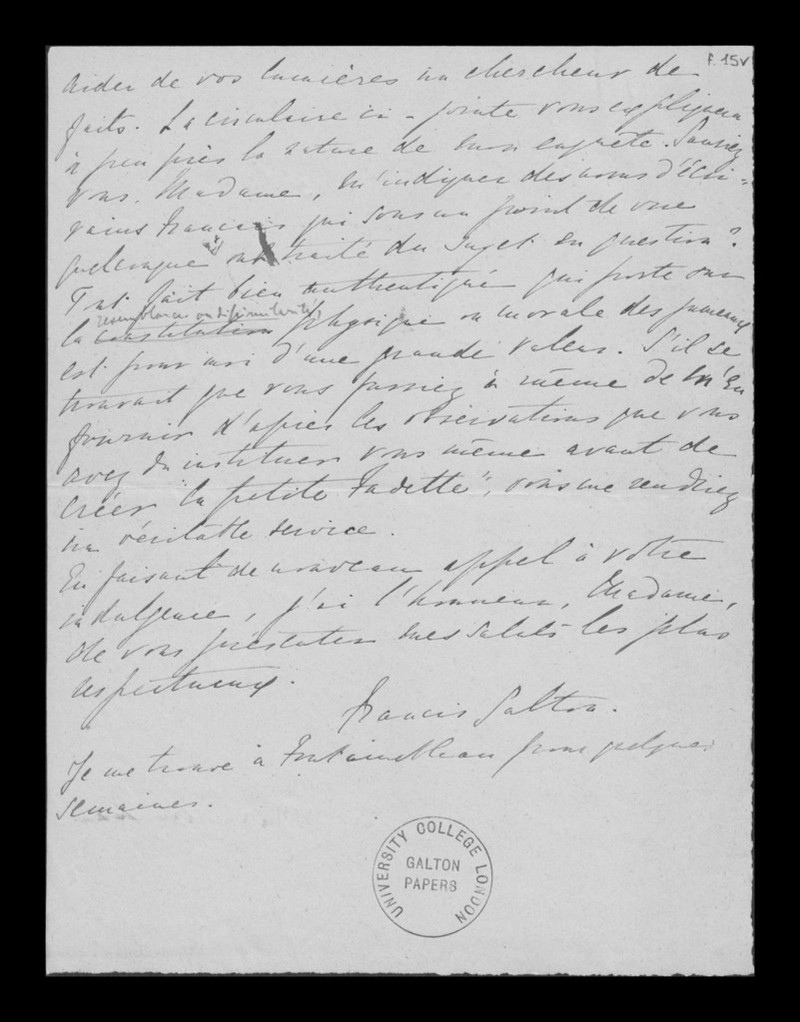 f. 15v
aider de vos lumières un chercheur de
faits. La circulaire ci-jointe vous expliquera
à peu près la nature de mon enquête. Sauriez
vous, Madame, m'indiquer des noms d'écri-
vains français qui sous un point de vue
quelconque ont traité du sujet en question?
Tout fait bien authentiqué qui porte sur
ressemblance ou dissimilarité
la constitution physique ou morale des jumeaux
est pour moi d'une grande valeur. S'il se
trouvait que vous fussiez à même de m'en
fournir d'après les observations que vous
avez dû instituer vous même avant de
créer "la petite Fadette", vous me rendriez
un véritable service.
En faisant de nouveau appel à votre
indulgence, j'ai l'honneur, Madame,
de vous présenter mes saluts les plus
respectueux.
Francis Galton.
Je me trouve à Fontainebleau pour quelques
semaines.
UNIVERSITY COLLEGE LONDON
GALTON
PAPERS